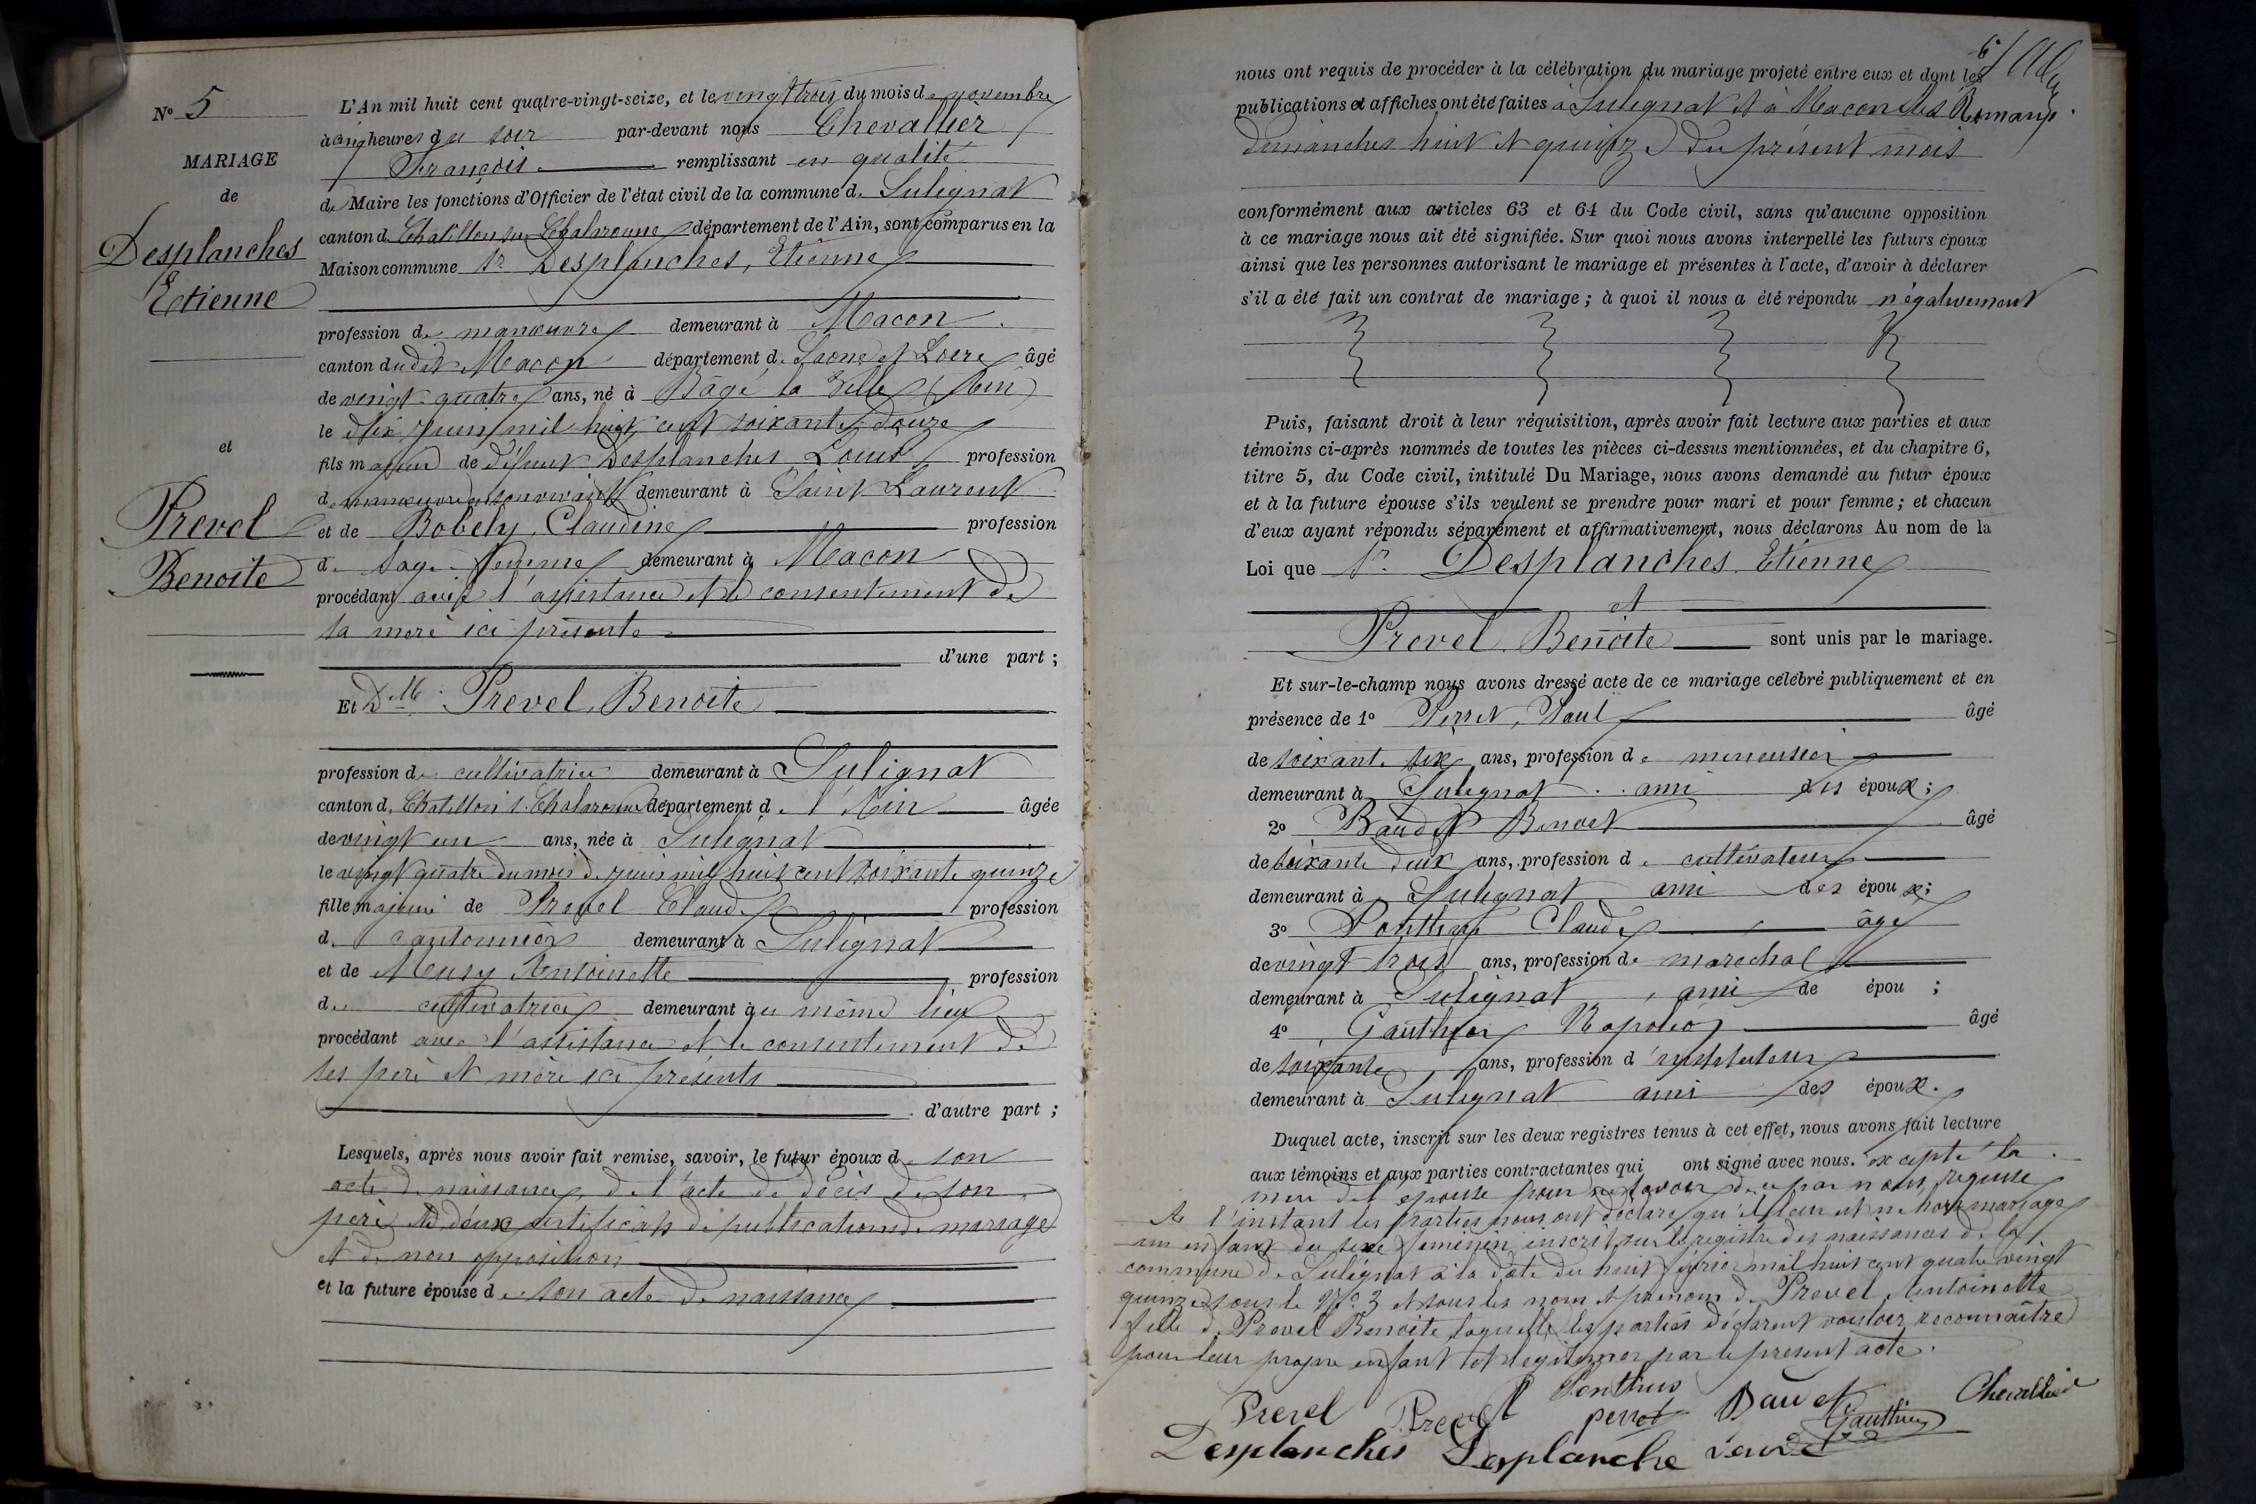 N° 5
MARIAGE
de
Desplanches
Etienne
et
Prevel
Benoite
L'An mil huit cent quatre-vingt-seize, et le vingt trois du mois de novembre
à cinq heures du soir par-devant nous Chevallier
François remplissant en qualité
de Maire les fonctions d'Officier de l'état civil de la commune de Sulignat
canton de Chatillon sur Chalaronne département de l'Ain, sont comparus en la
Maison commune Sr Desplanches, Etienne
profession de manœuvre demeurant à Macon
canton dudit Macon département de Saone et Loire âgé
de vingt-quatre ans, né à Bâgé la Ville (Ain)
le dix juin mil huit cent soixante douze
fils majeur de défunt Desplanches Louis profession
de manœuvre de son vivant demeurant à Saint Laurent
et de Bobely, Claudine profession
de sage-femme demeurant à Macon
procédant avec l'assistance et le consentement de
sa mère ici présente
d'une part ;
Et Dlle Prevel, Benoite
profession de cultivatrice demeurant à Sulignat
canton de Chatillon s. Chalaronne département de l'Ain âgée
de vingt un ans, née à Sulignat
le vingt quatre du mois de juin mil huit cent soixante quinze
fille majeure de Prevel Claude profession
de cantonnier demeurant à Sulignat
et de Meusy Antoinette profession
de cultivatrice demeurant au même lieu
procédant avec l'assistance et le consentement de
ses père et mère ici présents
d'autre part ;
Lesquels, après nous avoir fait remise, savoir, le futur époux de son
acte de naissance, de l'acte de décès de son
père, et deux certificats de publication de mariage
et de non opposition
et la future épouse de son acte de naissance
6
nous ont requis de procéder à la célébration du mariage projeté entre eux et dont les
publications et affiches ont été faites à Sulignat et à Macon les Romans
dimanches huit et quinze du présent mois
conformément aux articles 63 et 64 du Code civil, sans qu'aucune opposition
à ce mariage nous ait été signifiée. Sur quoi nous avons interpellé les futurs époux
ainsi que les personnes autorisant le mariage et présentes à l'acte, d'avoir à déclarer
s'il a été fait un contrat de mariage ; à quoi il nous a été répondu négativement
Puis, faisant droit à leur réquisition, après avoir fait lecture aux parties et aux
témoins ci-après nommés de toutes les pièces ci-dessus mentionnées, et du chapitre 6,
titre 5, du Code civil, intitulé Du Mariage, nous avons demandé au futur époux
et à la future épouse s'ils veulent se prendre pour mari et pour femme ; et chacun
d'eux ayant répondu séparément et affirmativement, nous déclarons Au nom de la
Loi que Sr Desplanches Etienne
et
Prevel Benoite sont unis par le mariage.
Et sur-le-champ nous avons dressé acte de ce mariage célébré publiquement et en
présence de 1° Perret, Paul âgé
de soixante six ans, profession de menuisier
demeurant à Sulignat ami des époux ;
2° Baudet Benoit âgé
de soixante deux ans, profession de cultivateur
demeurant à Sulignat ami des époux ;
3° Ponthus Claude âgé
de vingt trois ans, profession de maréchal
demeurant à Sulignat, ami de épou ;
4° Gauthier Napoléon âgé
de soixante ans, profession d'instituteur
demeurant à Sulignat ami des époux.
Duquel acte, inscrit sur les deux registres tenus à cet effet, nous avons fait lecture
aux témoins et aux parties contractantes qui ont signé avec nous. excepté la
mère de l'épouse pour ne savoir de ce par nous requise
A l'instant les parties nous ont déclaré qu'il leur est né hors mariage
un enfant du sexe féminin inscrit sur le registre des naissances de la
commune de Sulignat à la date du huit février mil huit cent quatre vingt
quinze sous le N° 3 et sous les nom et prénom de Prevel Antoinette
fille de Prevel Benoite laquelle les parties déclarent vouloir reconnaître
pour leur propre enfant et légitimer par le présent acte.
Prevel Prevel Ponthus perret Baudet Gauthier Chevallier
Desplanches Desplanche veuve